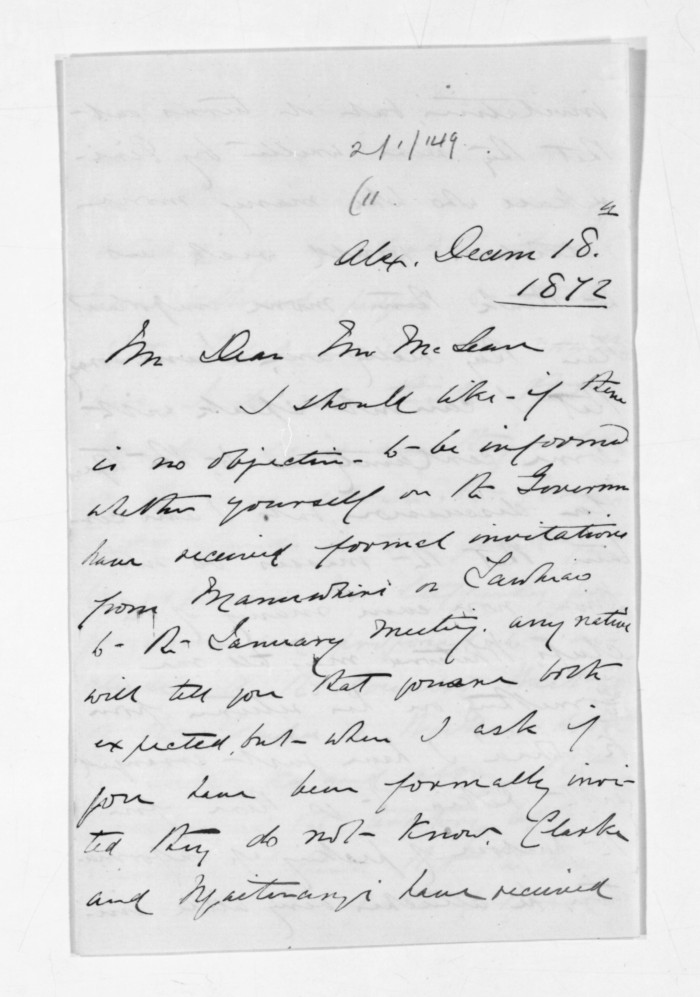 21/1/149
(11.
Alex. Decem 18.
1872
My Dear Mr McLean
I should like - if there
is no objection - to be informed
whether yourself or the Governor
have received formal invitations
from Manuwhiri or Tawhiao
to the January meeting. any native
will tell you that you are both
expected, but when I ask if
you have been formally invi-
ted they do not know. Clarke
and have received